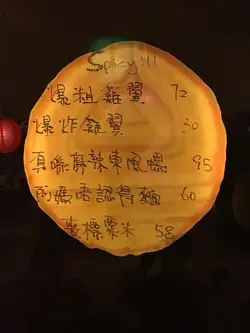 Spicy!!!
爆粗雞翼 72
爆炸雞翼 30
真喺麻辣東風螺 95
阿媽唔認得麵 60
標粟米 58